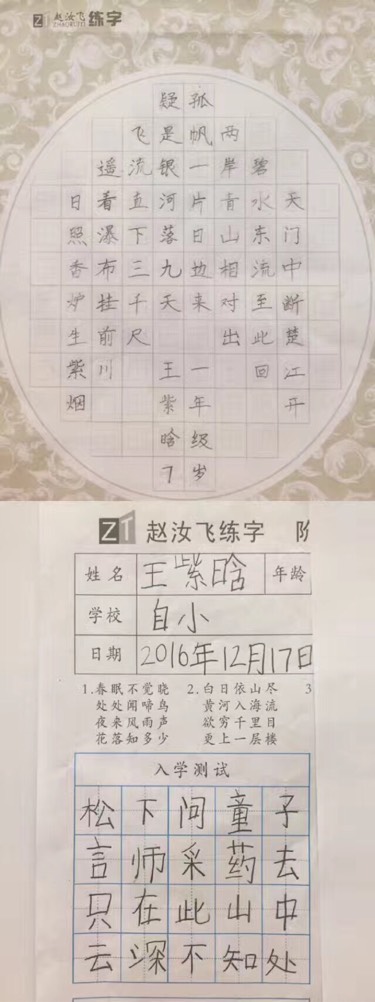 ZT 赵汝飞 练字
天门中断楚江开
碧水东流至此回
两岸青山相对出
孤帆一片日边来
日照香炉生紫烟
遥看瀑布挂前川
飞流直下三千尺
疑是银河落九天
一年级
王紫晗
7岁
ZT 赵汝飞练字 阶
姓名 王紫晗 年龄
学校 自小
日期 2016年12月17日
1.春眠不觉晓
处处闻啼鸟
夜来风雨声
花落知多少
2.白日依山尽
黄河入海流
欲穷千里目
更上一层楼
3
入学测试
松下问童子
言师采药去
只在此山中
云深不知处